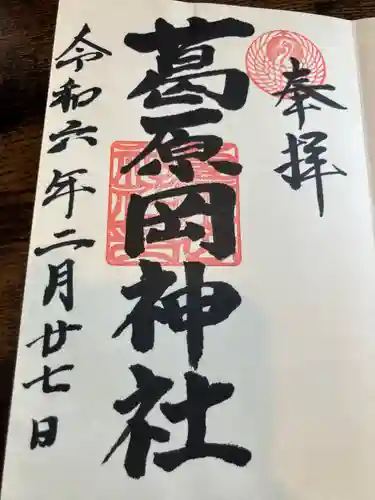 奉拝
葛原岡神社
令和六年二月廿七日